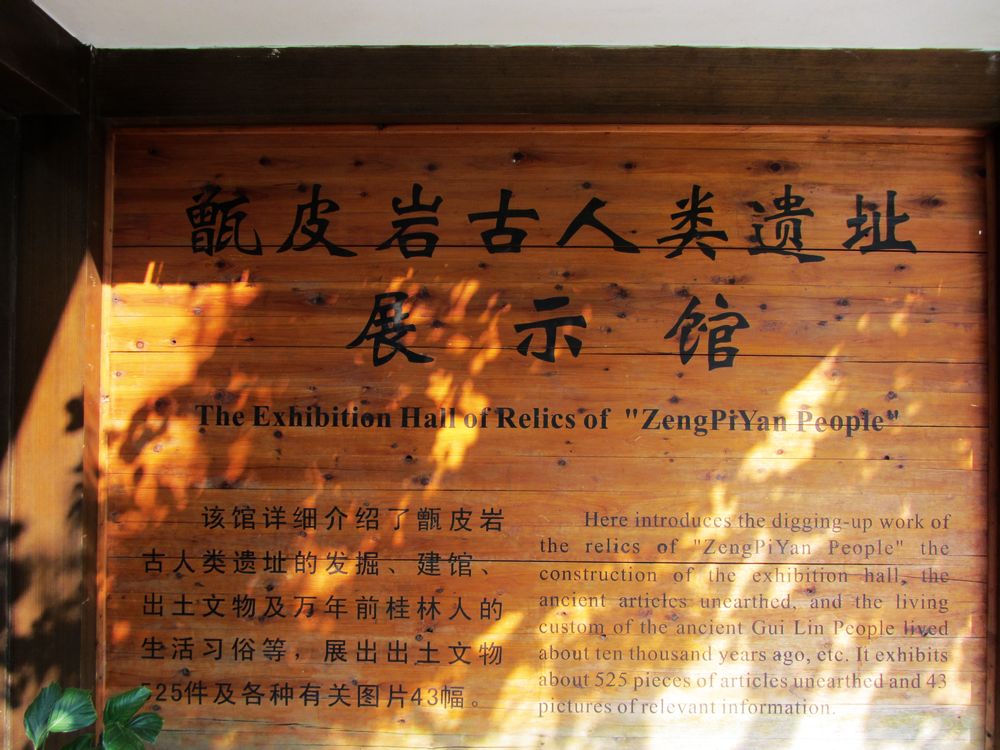 甑皮岩古人类遗址
展示馆
The Exhibition Hall of Relics of "ZengPiYan People"
该馆详细介绍了甑皮岩
古人类遗址的发掘、建馆、
出土文物及万年前桂林人的
生活习俗等，展出出土文物
525件及各种有关图片43幅。
Here introduces the digging-up work of
the relics of "ZengPiYan People" the
construction of the exhibition hall, the
ancient articles unearthed, and the living
custom of the ancient Gui Lin People lived
about ten thousand years ago, etc. It exhibits
about 525 pieces of articles unearthed and 43
pictures of relevant information.